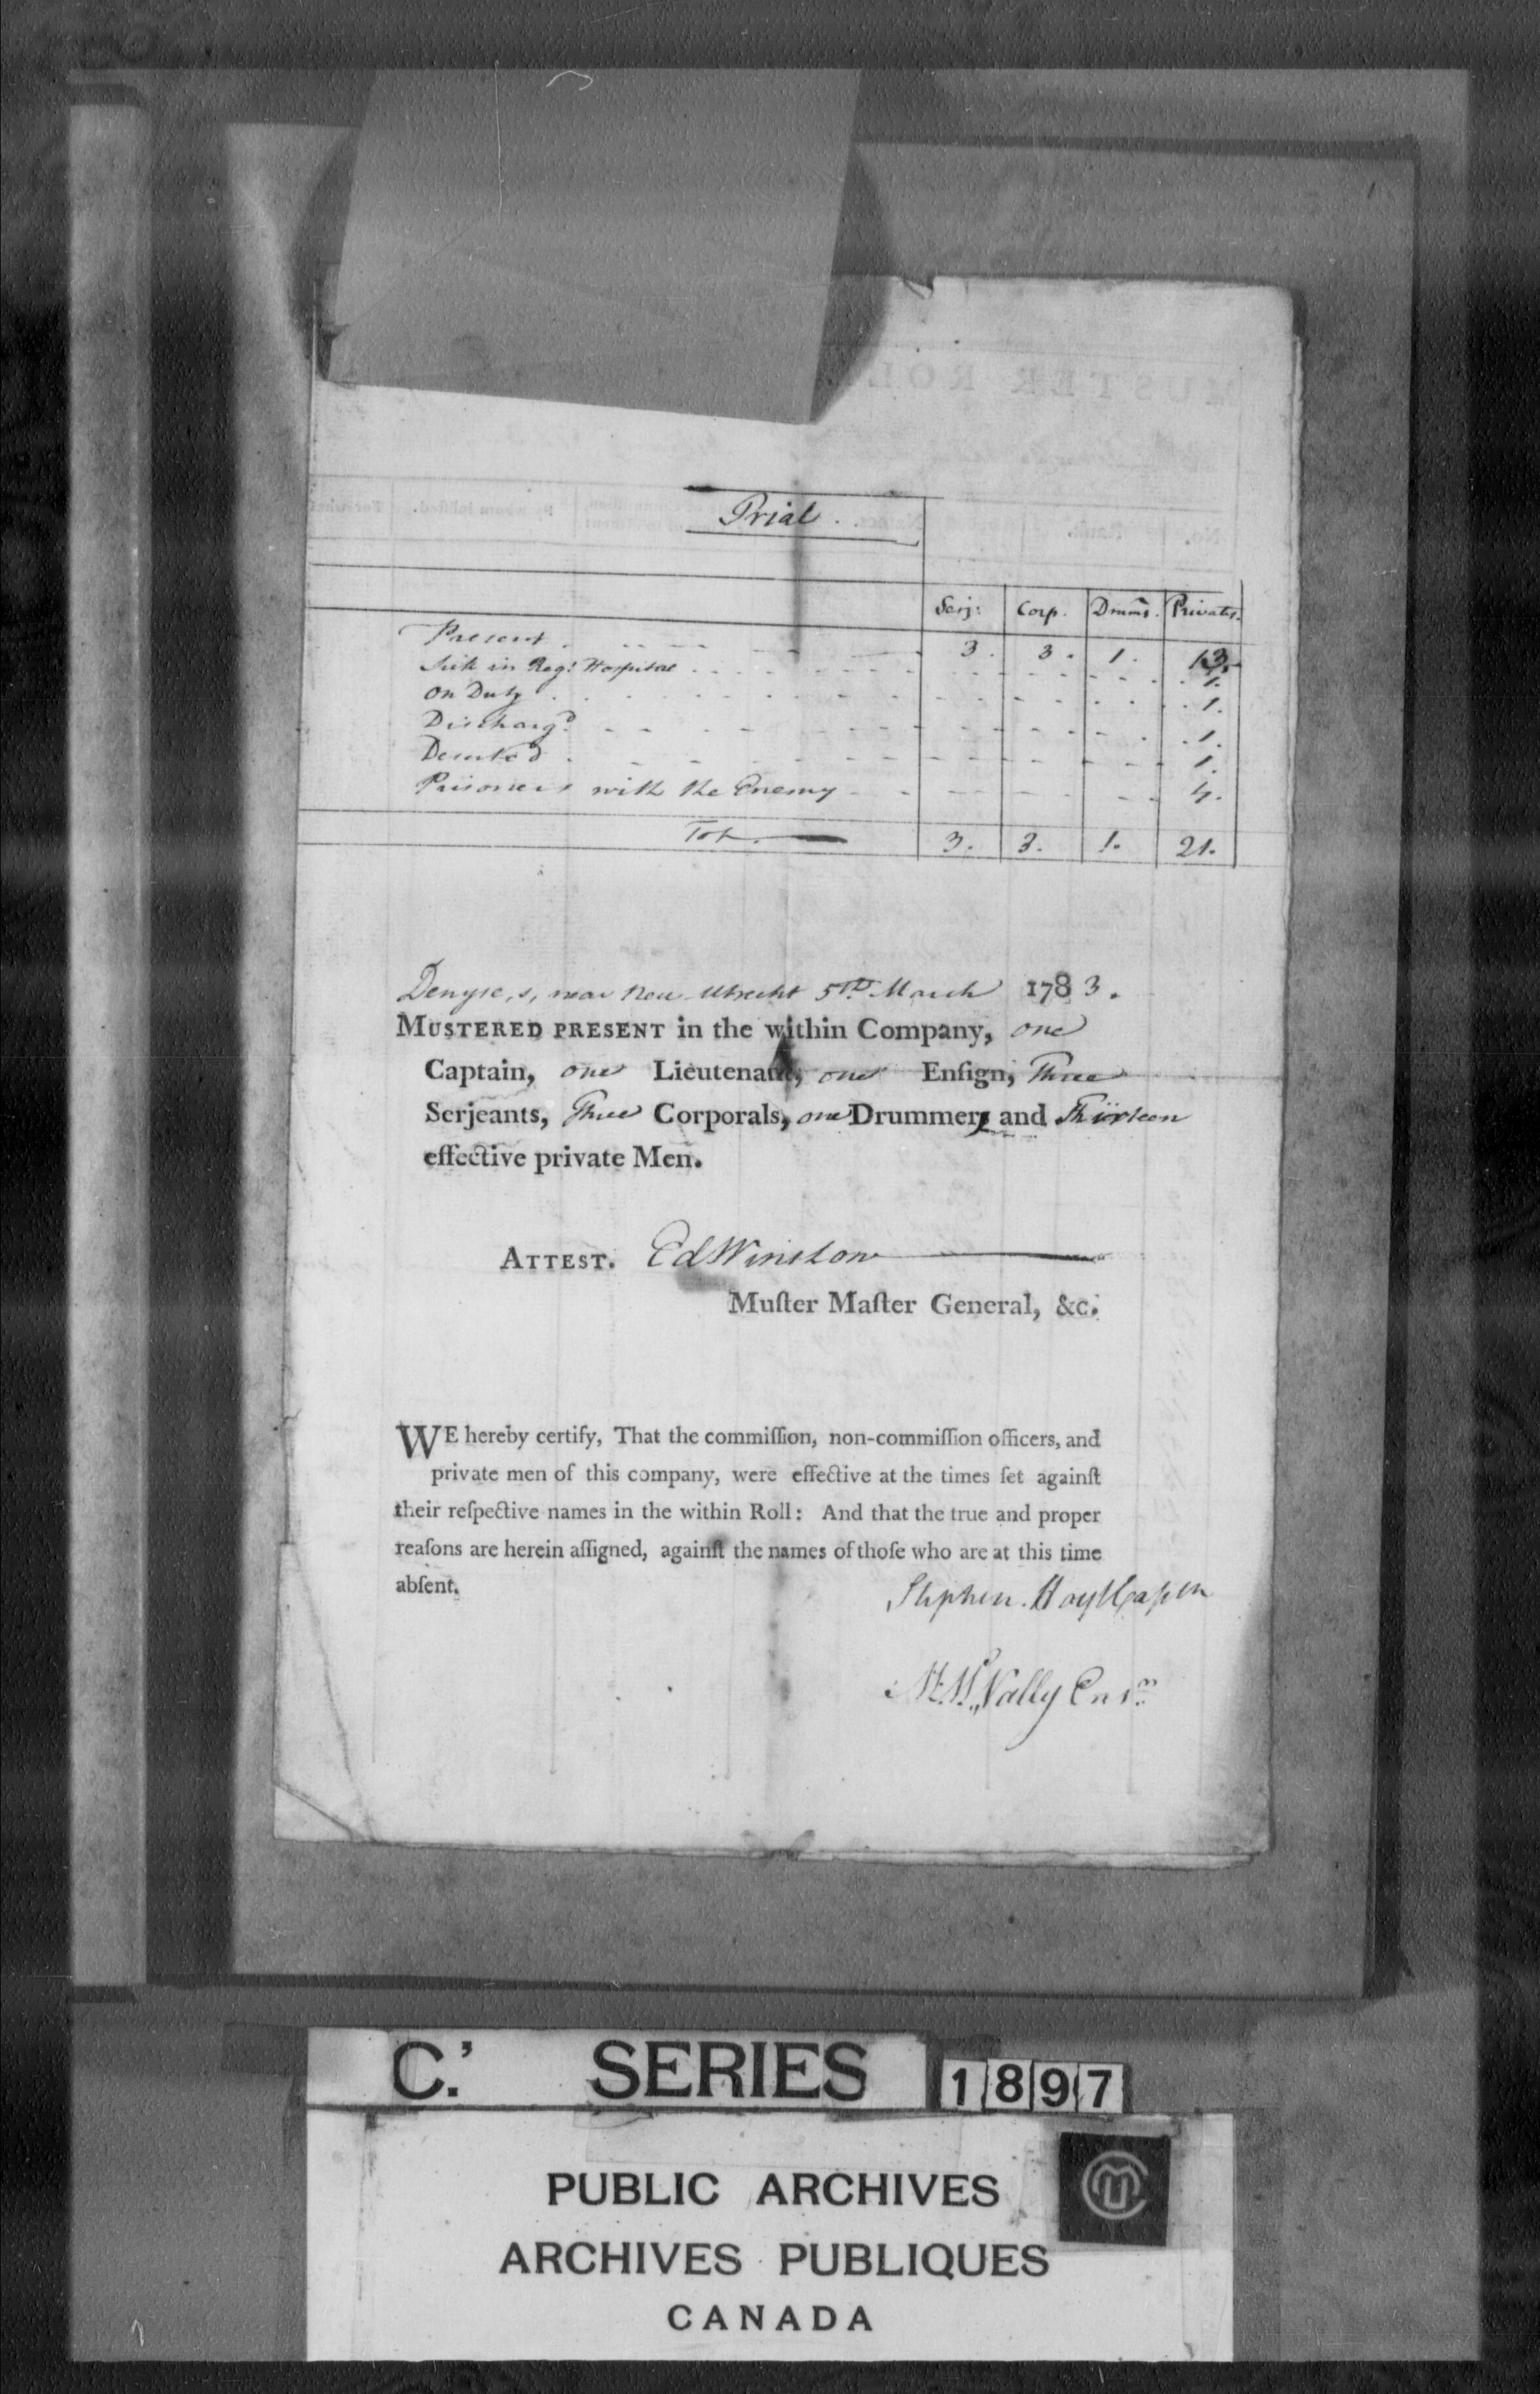 MUSTER ROL
Prial.
Serj: Corp. Drumrs. Privates.
Present 3. 3. 1. 13.
Sick in Regl Hospital 1.
On Duty 1.
Discharg'd 1.
Deserted 1.
Prisoners with the Enemy 4.
Tot. 3. 3. 1. 21.
Denyse,s, near New Utrecht 5th March 1783.
MUSTERED PRESENT in the within Company, one
Captain, one Lieutenant, one Enſign, Three
Serjeants, Three Corporals, one Drummer, and Thirteen
effective private Men.
ATTEST. Ed Winslow
Muſter Maſter General, &c.
WE hereby certify, That the commiſſion, non-commiſſion officers, and
private men of this company, were effective at the times ſet againſt
their reſpective names in the within Roll: And that the true and proper
reaſons are herein aſſigned, againſt the names of thoſe who are at this time
abſent.
Stephen Hoyt Capth
Nally Ensn
C.' SERIES 1897
PUBLIC ARCHIVES
ARCHIVES PUBLIQUES
CANADA